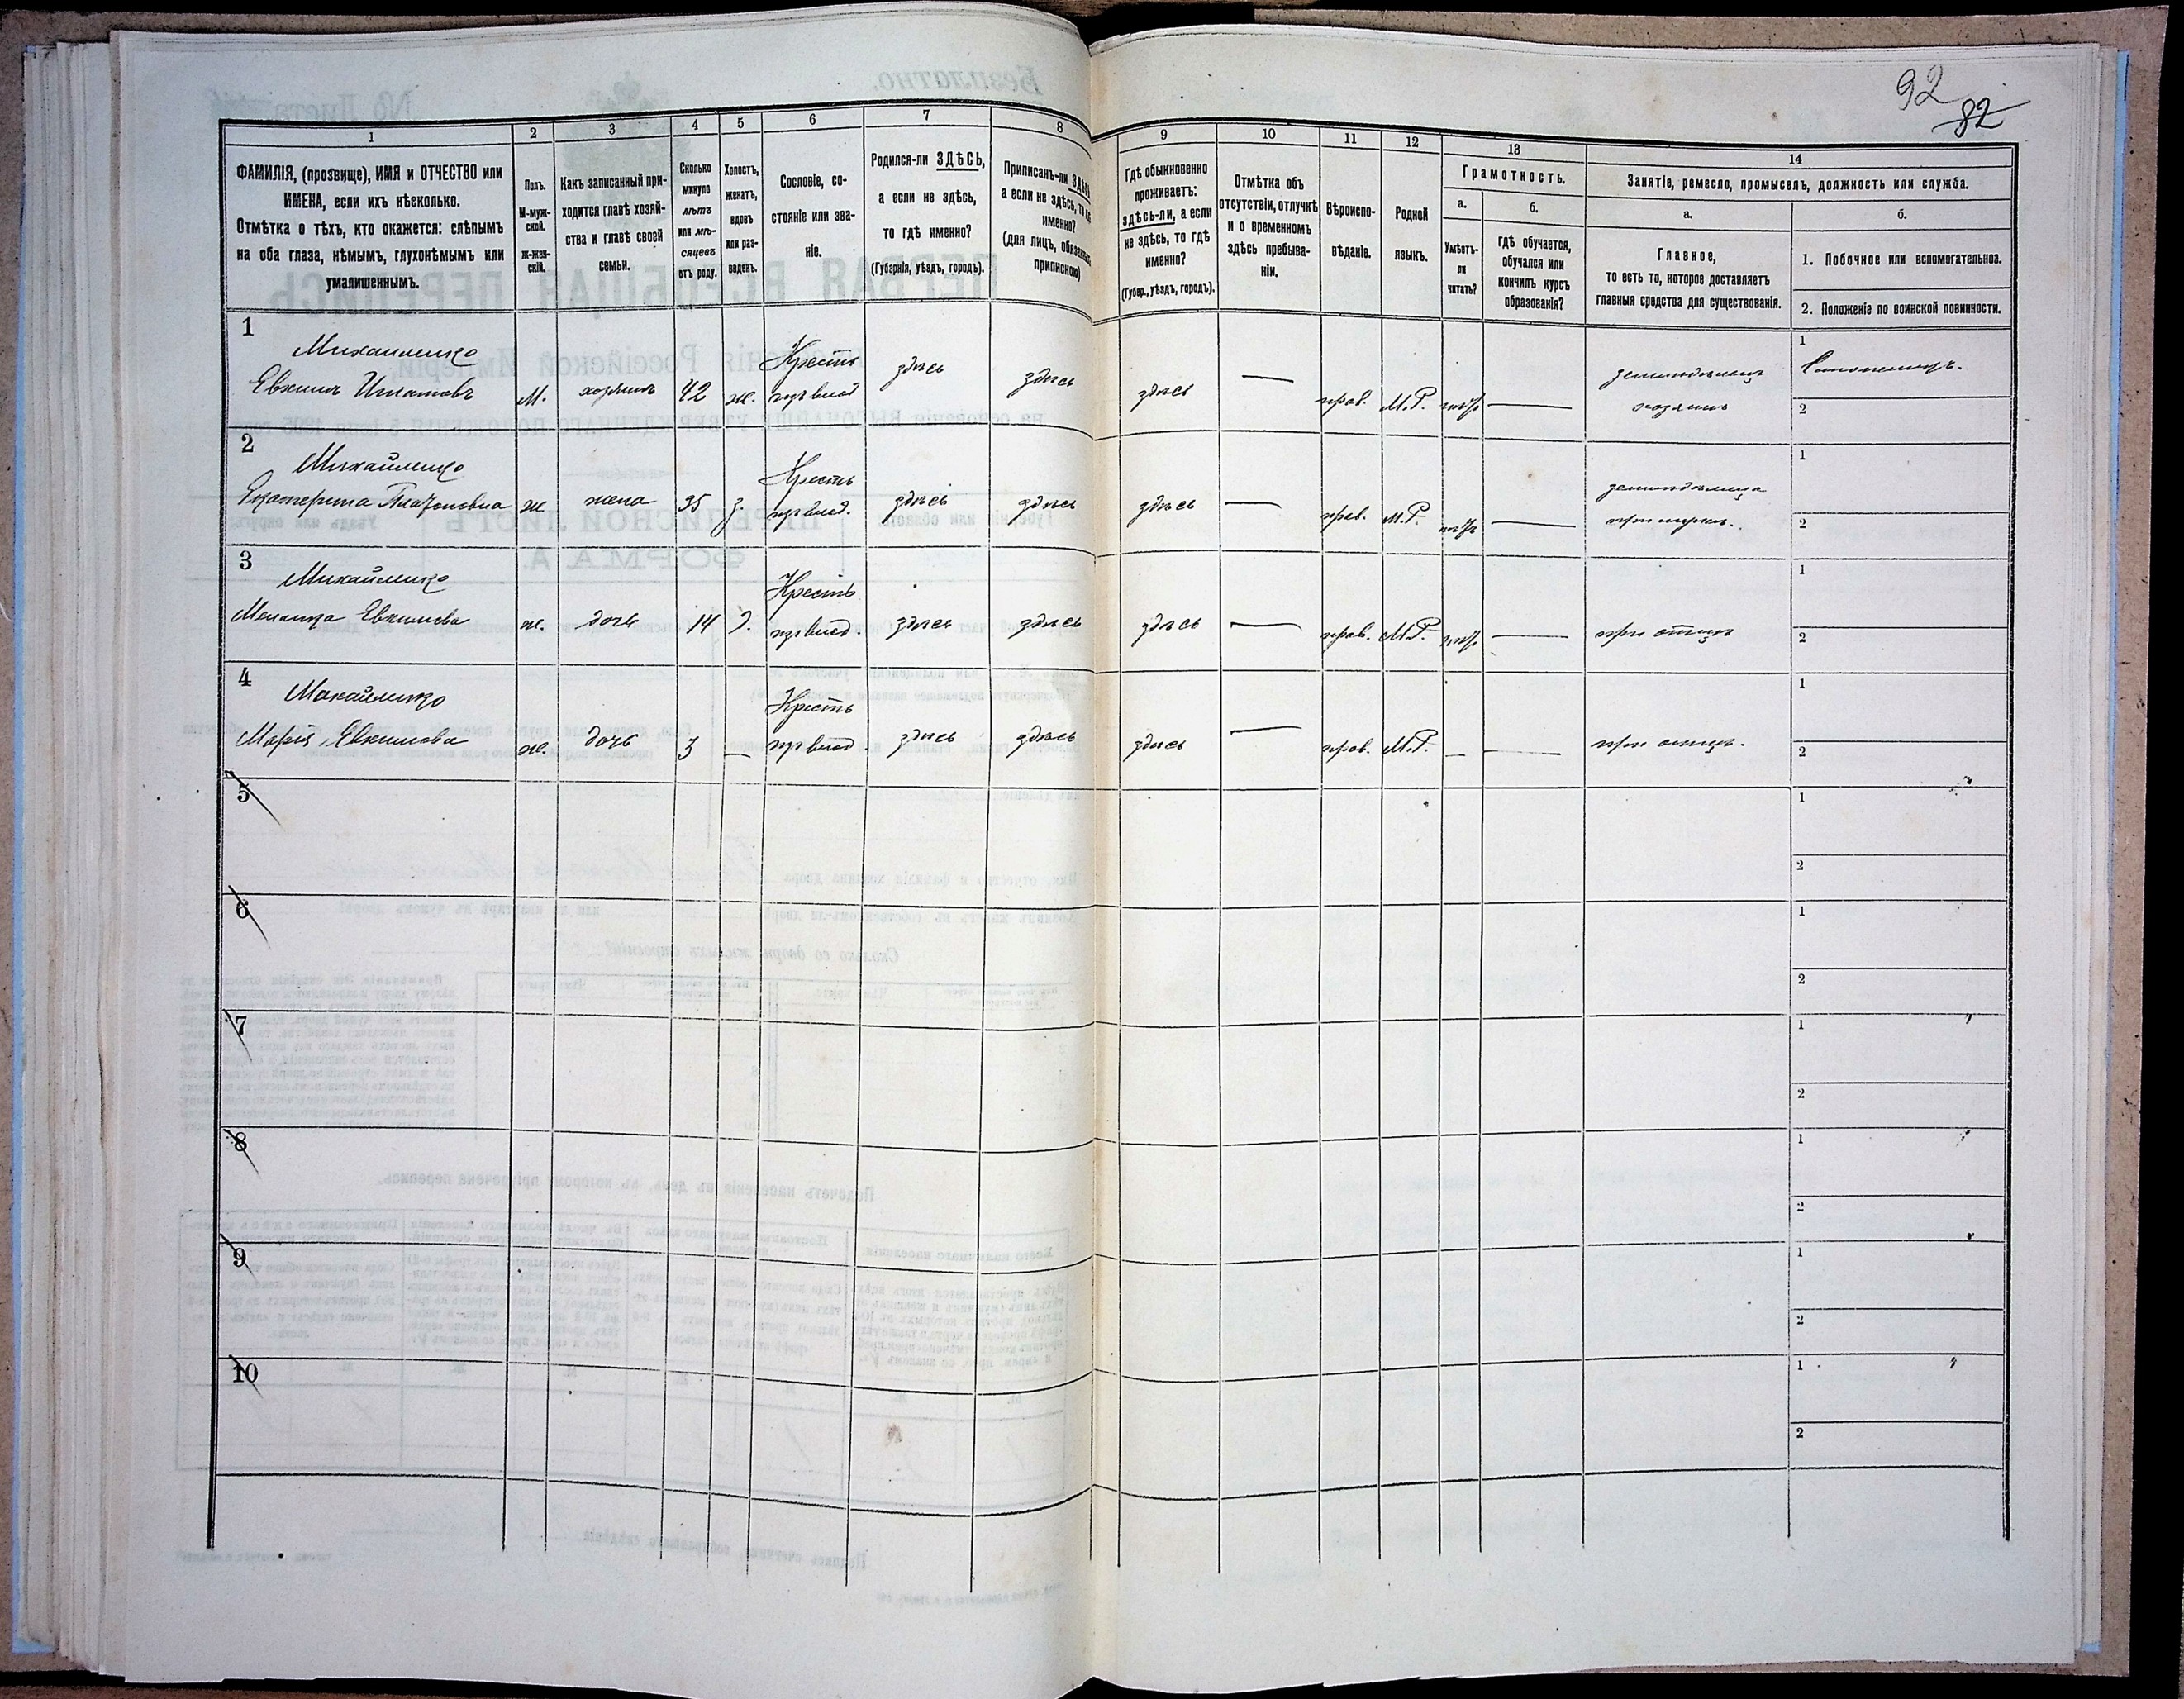 92
82
1
2
3
4
5
6
7
8
9
10
11
12
13
14
ФАМИЛІЯ, (прозвище), ИМЯ и ОТЧЕСТВО или
ИМЕНА, если ихъ нѣсколько.
Отмѣтка о тѣхъ, кто окажется: слѣпымъ
на оба глаза, нѣмымъ, глухонѣмымъ или
умалишеннымъ.
Полъ.
М-муж-
ской.
Ж-жен-
скій.
Какъ записанный при-
ходится главѣ хозяй-
ства и главѣ своей
семьи.
Сколько
минуло
лѣтъ
или мѣ-
сяцевъ
отъ роду.
Холостъ,
женатъ,
вдовъ
или раз-
веденъ.
Сословіе, со-
стояніе или зва-
ніе.
Родился-ли ЗДѢСЬ,
а если не здѣсь,
то гдѣ именно?
(Губернія, уѣздъ, городъ).
Приписанъ-ли ЗДѢСЬ
а если не здѣсь, то гдѣ
именно?
(для лицъ, обязанныхъ
припискою)
Гдѣ обыкновенно
проживаетъ:
здѣсь-ли, а если
не здѣсь, то гдѣ
именно?
(Губер., уѣздъ, городъ).
Отмѣтка объ
отсутствіи, отлучкѣ
и о временномъ
здѣсь пребыва-
ніи.
Вѣроиспо-
вѣданіе.
Родной
языкъ.
Грамотность.
а.
б.
Умѣетъ-
ли
читать?
гдѣ обучается,
обучался или
кончилъ курсъ
образованія?
Занятіе, ремесло, промыселъ, должность или служба.
а.
б.
Главное,
то есть то, которое доставляетъ
главныя средства для существованія.
1. Побочное или вспомогательное.
2. Положеніе по воинской повинности.
1
Михайленко
Евхимъ Игнатовъ
М.
хозяинъ
42
ж.
Крестъ
изъ влад
здѣсь
здѣсь
здѣсь
прав.
М.Р.
нѣтъ
земледѣлецъ
хозяинъ
1
2
2
Михайленко
Екатерина
ж
жена
35
з.
Крестъ
изъ влад.
здѣсь
здѣсь
здѣсь
прав.
М.Р.
нѣтъ
при мужѣ.
1
2
3
Михайленко
Евхимова
ж.
дочь
14
д.
Крестъ
изъ влад.
здѣсь
здѣсь
здѣсь
прав.
М.Р.
нѣтъ
при отцѣ
1
2
4
Михайленко
Марія Евхимова
ж.
дочь
3
Крестъ
изъ влад
здѣсь
здѣсь
здѣсь
прав.
М.Р.
при отцѣ.
1
2
5
1
2
6
1
2
7
1
2
8
1
2
9
1
2
10
1
2